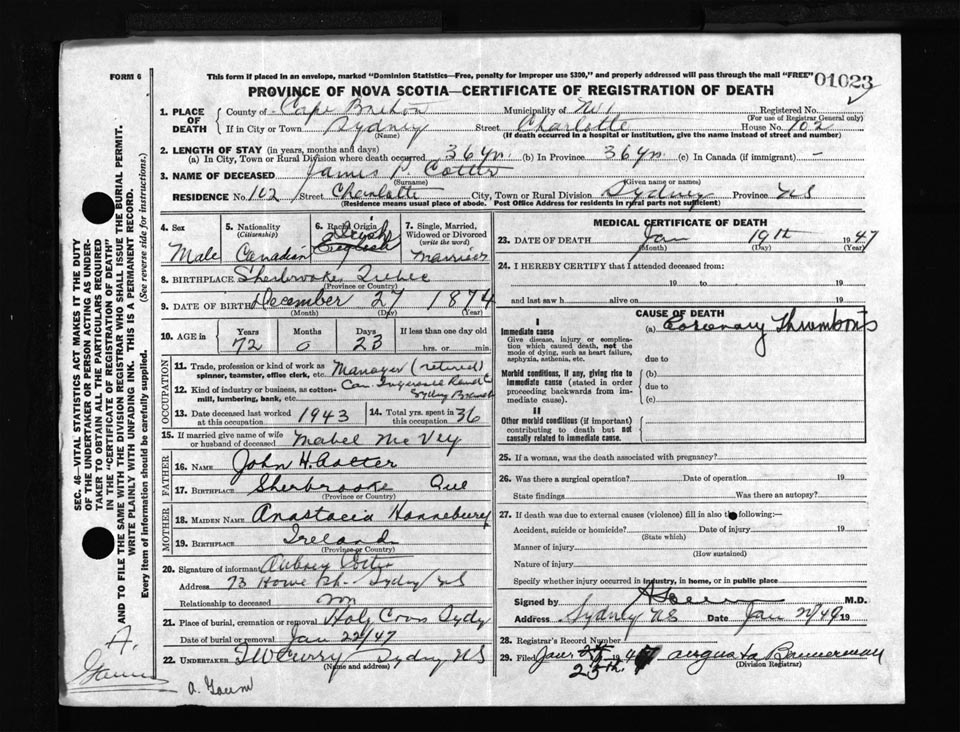 FORM 6
This form if placed in an envelope, marked "Dominion Statistics—Free, penalty for improper use $300," and properly addressed will pass through the mail "FREE"
01023
PROVINCE OF NOVA SCOTIA—CERTIFICATE OF REGISTRATION OF DEATH
1. PLACE OF DEATH County of Cape Breton Municipality of Registered No.
(For use of Registrar General only)
If in City or Town Sydney Street Charlotte House No. 102
(Name) (If death occurred in a hospital or institution, give the name instead of street and number)
2. LENGTH OF STAY (in years, months and days)
(a) In City, Town or Rural Division where death occurred 36 yr. (b) In Province 36 yr. (c) In Canada (if immigrant) —
3. NAME OF DECEASED James P. Cotter
(Surname) (Given name or names)
RESIDENCE No. 102 Street Charlotte City, Town or Rural Division Sydney Province NS
(Residence means usual place of abode. Post Office Address for residents in rural parts not sufficient)
4. Sex 5. Nationality (Citizenship) 6. Racial Origin 7. Single, Married, Widowed or Divorced (write the word)
Male Canadian Irish English Married
8. BIRTHPLACE Sherbrooke Quebec
(Province or Country)
9. DATE OF BIRTH December 27 1874
(Month) (Day) (Year)
10. AGE in Years Months Days If less than one day old
72 0 23 hrs. or min.
OCCUPATION
11. Trade, profession or kind of work as spinner, teamster, office clerk, etc. Manager (retired)
12. Kind of industry or business, as cotton-mill, lumbering, bank, etc. Can. Ingersoll Rand Co Sydney Branch
13. Date deceased last worked at this occupation 1943 14. Total yrs. spent in this occupation 36
15. If married give name of wife or husband of deceased Mabel McVey
FATHER
16. NAME John H. Cotter
17. BIRTHPLACE Sherbrooke Que
(Province or Country)
MOTHER
18. MAIDEN NAME Anastacia Hanneberry
19. BIRTHPLACE Ireland
(Province or Country)
20. Signature of informant Aubrey Cotter
Address 73 Howe St. Sydney NS
Relationship to deceased
21. Place of burial, cremation or removal Holy Cross Sydney
Date of burial or removal Jan 22/47
22. UNDERTAKER T W Curry Sydney NS
(Name and address)
MEDICAL CERTIFICATE OF DEATH
23. DATE OF DEATH Jan 19th 1947
(Month) (Day) (Year)
24. I HEREBY CERTIFY that I attended deceased from:
19 to 19
and last saw h alive on 19
CAUSE OF DEATH
I
Immediate cause (a) Coronary Thrombosis
Give disease, injury or complication which caused death, not the mode of dying, such as heart failure, asphyxia, asthenia, etc.
due to
Morbid conditions, if any, giving rise to immediate cause (stated in order proceeding backwards from immediate cause).
(b)
due to
(c)
II
Other morbid conditions (if important) contributing to death but not causally related to immediate cause.
25. If a woman, was the death associated with pregnancy?
26. Was there a surgical operation? Date of operation 19
State findings Was there an autopsy?
27. If death was due to external causes (violence) fill in also the following:—
Accident, suicide or homicide? Date of injury 19
(State which)
Manner of injury
(How sustained)
Nature of injury
Specify whether injury occurred in industry, in home, or in public place
Signed by M.D.
Address Sydney NS Date Jan 19
28. Registrar's Record Number
29. Filed 25th. 19 47 Augusta Bannerman
(Division Registrar)
SEC. 46—VITAL STATISTICS ACT MAKES IT THE DUTY
OF THE UNDERTAKER OR PERSON ACTING AS UNDERTAKER
TO OBTAIN ALL THE PARTICULARS REQUIRED
IN THE "CERTIFICATE OF REGISTRATION OF DEATH"
AND TO FILE THE SAME WITH THE DIVISION REGISTRAR WHO SHALL ISSUE THE BURIAL PERMIT.
WRITE PLAINLY WITH UNFADING INK. THIS IS A PERMANENT RECORD.
Every item of information should be carefully supplied. (See reverse side for instructions.)
A.
A. Gaum